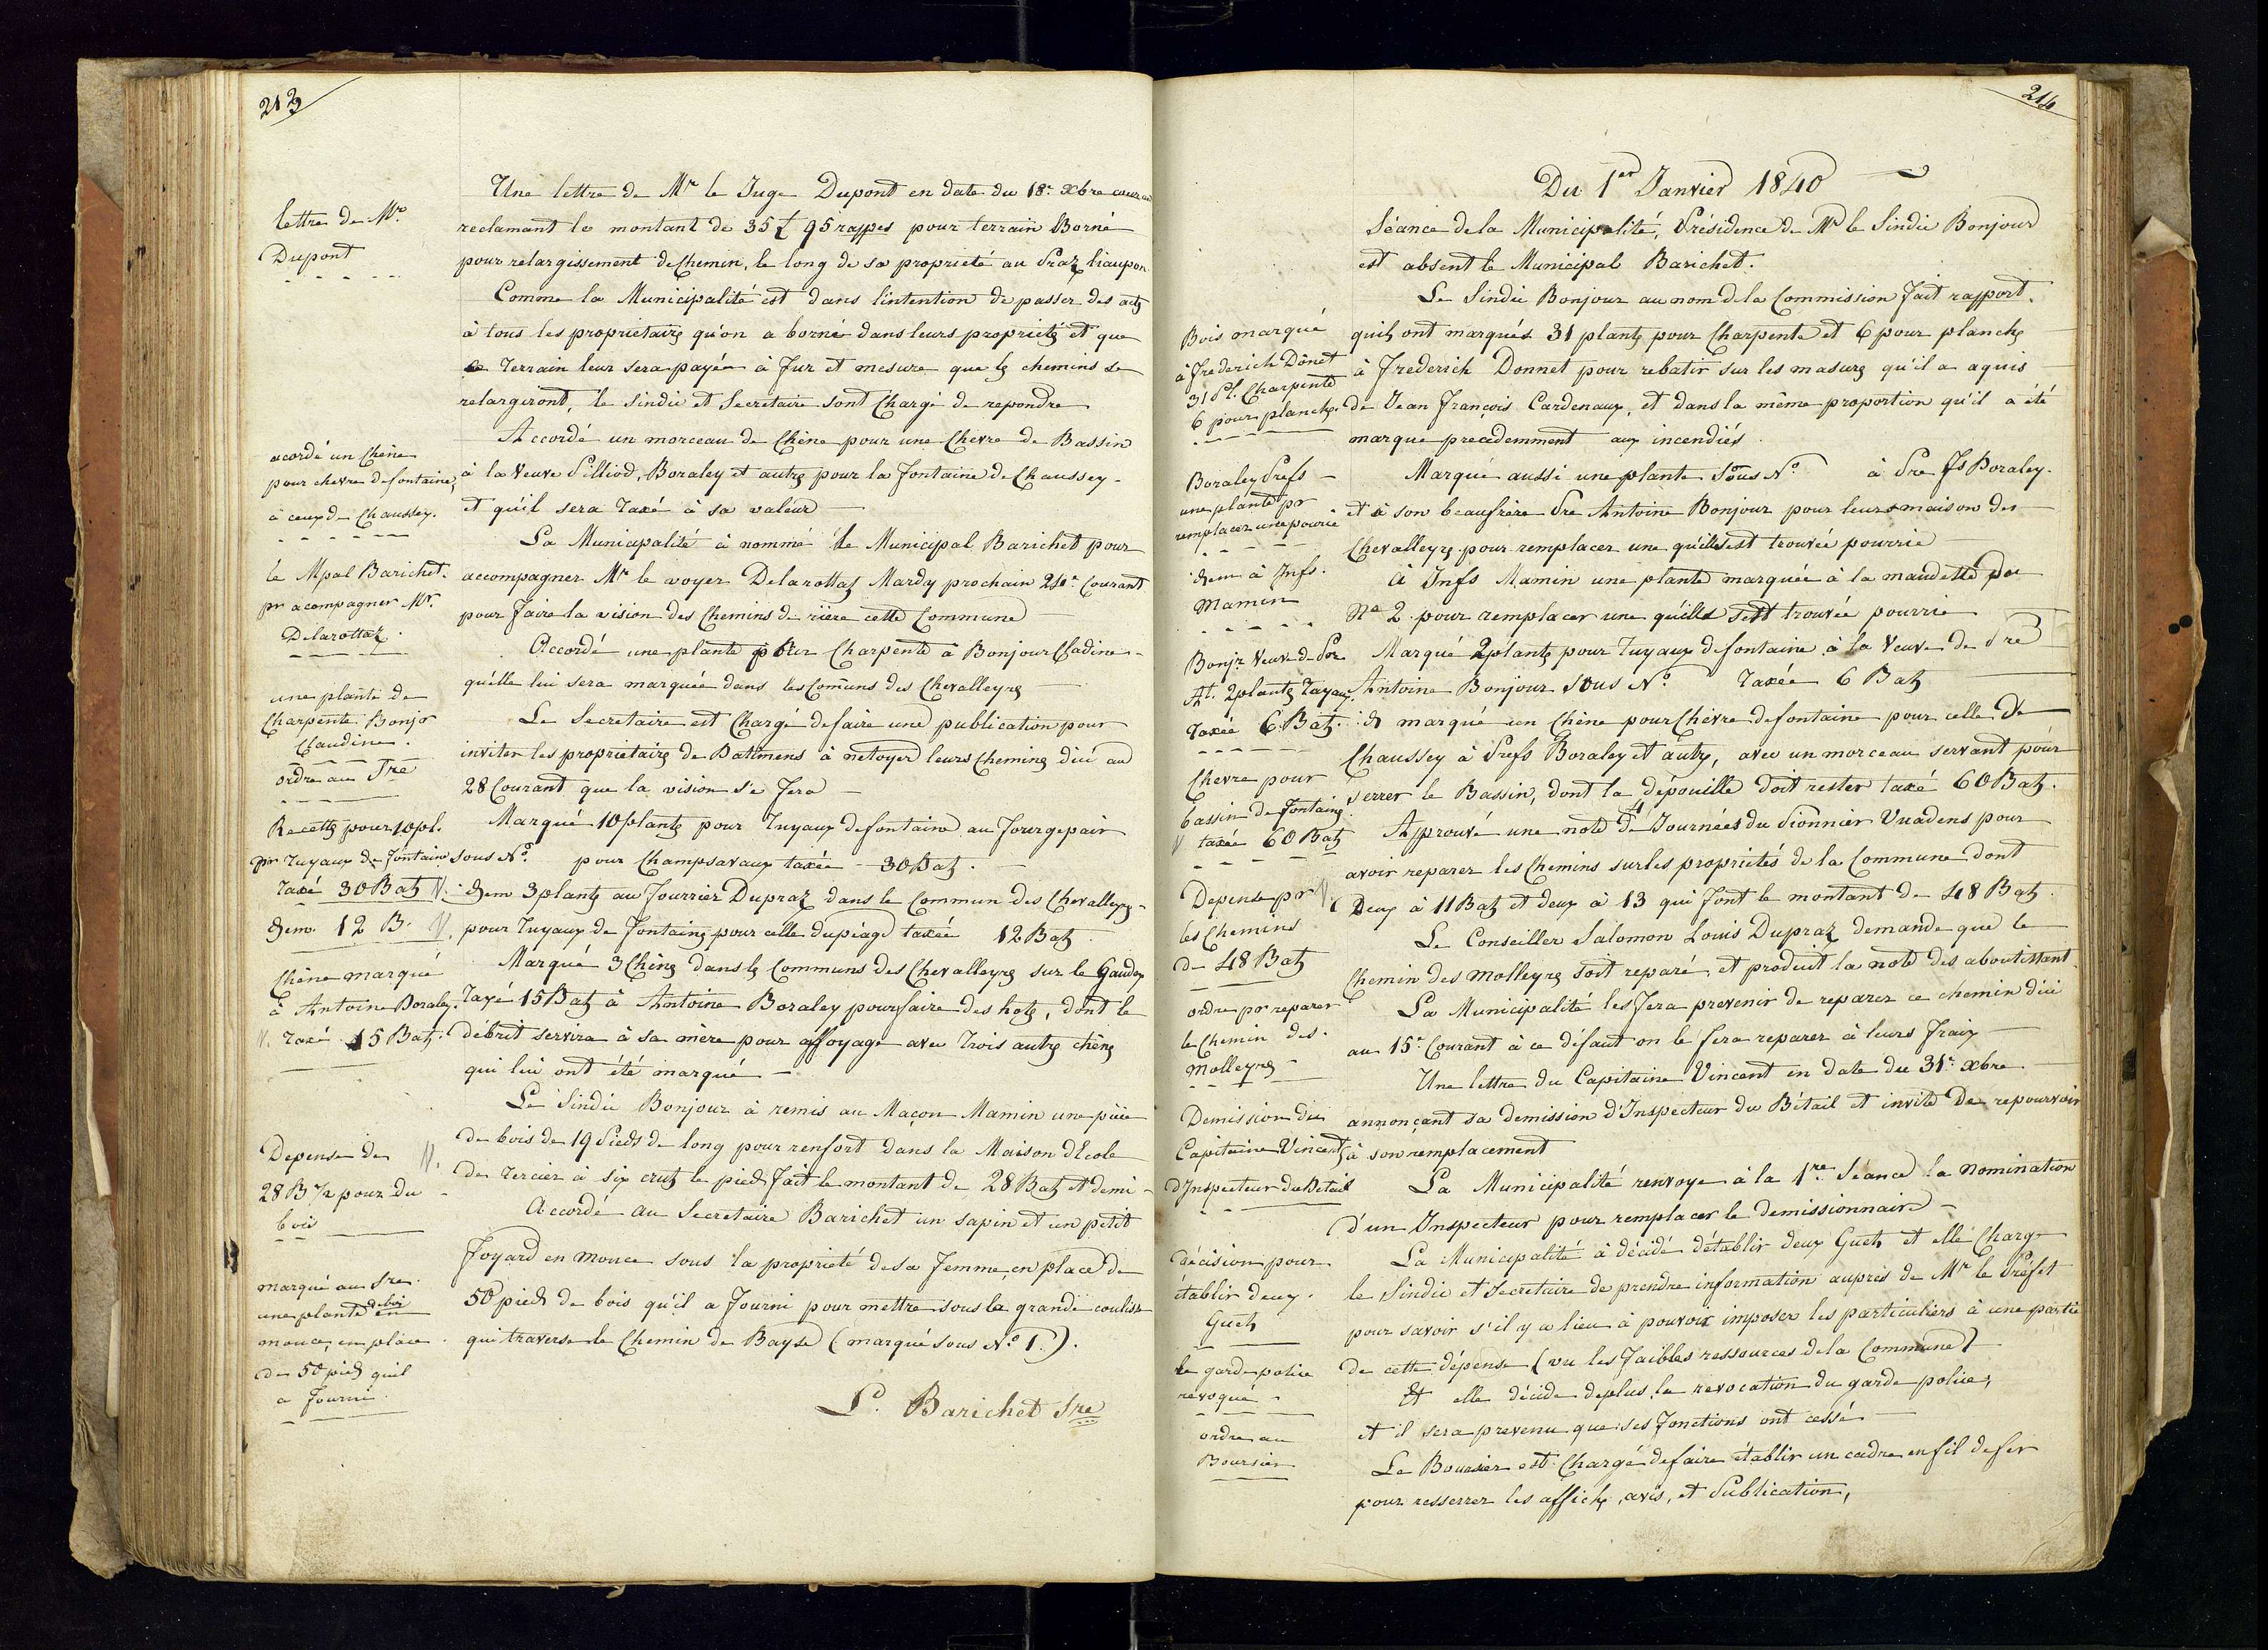 213
lettre de Mr.
Dupont
Une lettre de Mr le Juge Dupont en date du 18e xbre
reclamant le montant de 35 £ 95 rappes pour terrain Borné
pour relargissement de Chemin, le long de sa proprieté au Praz
Comme la Municipalité est dans lintention de passer des acts
à tous les proprietaires qu'on a borné dans leurs propriétés et que
ce Terrain leur sera payée à fur et mesure que les chemins se
relargiront, le Sindic et Secretaire sont Chargé de repondre
acordé un Chêne
pour chevre de fontaine,
à ceux de Chaussey.
Accordé un morceau de Chêne pour une Chevre de Bassin
à la Veuve Pilliod, Boraley et autres pour la fontaine de Chaussey
et qu'il sera Taxé à sa valeur
le Mpal Barichet.
pr acompagner Mr.
Delarottaz.
La Municipalité à nommé le Municipal Barichet pour
accompagner Mr le voyer Delarottaz Mardy prochain 24e Courant
pour faire la vision des Chemins de rière cette Commune
une plante de
Charpente Bonjr
Claudine.
Accordé une plante pour Charpente à Bonjour Cladine
quélle lui sera marquée dans les Comuns des Chevalleyres
ordre au Sre
Le Secretaire est Chargé de faire une publication pour
inviter les proprietaires de Batimens à netoyer leurs Chemins dici au
28 Courant que la vision se fera
Recette pour 10 pl.
pr Tuyaux de fontaine
Taxé 30 Batz
Marqué 10 plantes pour Tuyaux de fontaine au Fourgepair
sous No. pour Champsavaux taxée 30 Batz.
Idem 12 B.
Idem 3 plantes au fourrier Dupraz dans le Commun des Chevalleyres
pour Tuyaux de fontaines pour celle du péage taxée 12 Batz.
Chêne marqué
à Antoine Boraley.
Taxé 15 Batz.
Marqué 3 Chênes dans les Communs des Chevalleyres sur le Gaudy
Taxé 15 Batz à Antoine Boraley pour faire des hotes, dont le
debrit servira à sa mère pour affoyage avec Trois autres chênes
qui lui ont été marqué
Depense de
28 B ½ pour du
bois
Le Sindic Bonjour à remis au Maçon Mamin une pièce
de bois de 19 Pieds de long pour renfort dans la Maison dEcole
de Tercier à six crutz le pied, fait le montant de 28 Batz et demi
marqué au Sre.
une plante de boi en
mouce, en place
de 50 pieds quil
a fourni.
Accordé au Secretaire Barichet un sapin et un petit
foyard en Mouce sous la proprieté de sa femme, en place de
50 pieds de bois qu'il a fourni pour mettre sous la grande coulisse
qui traverse le Chemin de Bayse (marqué sous No 1.).
L. Barichet Sre
214
Du 1er Janvier 1840
Séance de la Municipalité, Présidence de Mr le Sindic Bonjour
est absent le Municipal Barichet.
Bois marqué
à Frederich Dônet
31 Pl. Charpente
6 pour planches.
Le Sindic Bonjour au nom de la Commission fait rapport.
quils ont marqués 31 plantes pour Charpente et 6 pour planches
à Frederich Donnet pour rebatir sur les masures qu'il a aquis
de Jean François Cardenaux, et dans la même proportion qu'il a été
marque precedemment aux incendiés.
Boraley Prefs
une plante pr
remplacer une pourie
Marqué aussi une plante sous No à Pre Fs Boraley.
et à son beaufrère Pre Antoine Bonjour pour leur maison des
Chevalleyres pour remplacer une qu'ille sest trouvée pourrie
idem à Jnfs.
Mamin
à Jnfs Mamin une plante marquée à la maudette
No 2 pour remplacer une quille sest trouvée pourrie
Bonjr Veuve de Pre
At. 2 plantes Tuyaux
Taxée 6 Batz.
Marqué 2 plantes pour Tuyaux de fontaine à la Veuve de Pre
Antoine Bonjour sous No Taxée 6 Batz
Chevre pour
bassin de fontaine
taxée 60 Batz
id marqué un Chêne pour Chèvre de fontaine pour celle de
Chaussey à Prefs Boraley et autres, avec un morceau servant pour
serrer le Bassin, dont la dépouille doit rester taxé 60 Batz.
Depense pr
les Chemins
de 48 Batz
Approuvé une note de 4 Journées du Pionnier Vuadens pour
avoir reparer les Chemins sur les propriétés de la Commune dont
Deux à 11 Batz et deux à 13 qui font le montant de 48 Batz.
ordre pr reparer
le Chemin des
Molleyres
Le Conseiller Salomon Louis Dupraz demande que le
Chemin des Molleyres soit reparé, et produit la note des aboutissant
La Municipalité les fera prevenir de reparer ce chemin dici
au 15e Courant à ce défaut on le fera reparer à leurs fraix
Demission du
Capitaine Vincent
d'Inspecteur du Betail
Une lettre du Capitaine Vincent en date du 31e xbre
annonçant sa demission d'Inspecteur du Bétail et invite de repourvoir
à son remplacement
La Municipalité renvoye à la 1re Séance la nomination
d'un Inspecteur pour remplacer le demissionnaire
décision pour
établir deux
Guets
La Municipalité à décidé détablir deux Guets et elle Charge
le Sindic et Secretaire de prendre information auprès de Mr le Préfet
pour savoir s'il y a lieu à pouvoir imposer les particuliers à une partie
de cette dépense (vu les faibles ressources de la Commune)
le garde police
révoqué
Et elle décide de plus la revocation du garde police,
et il sera prevenu que ses fonctions ont cessé
ordre au
Boursier
Le Boursier est Chargé de faire établir un cadre en fil de fer
pour resserrer les affiches, avis, et Publication,